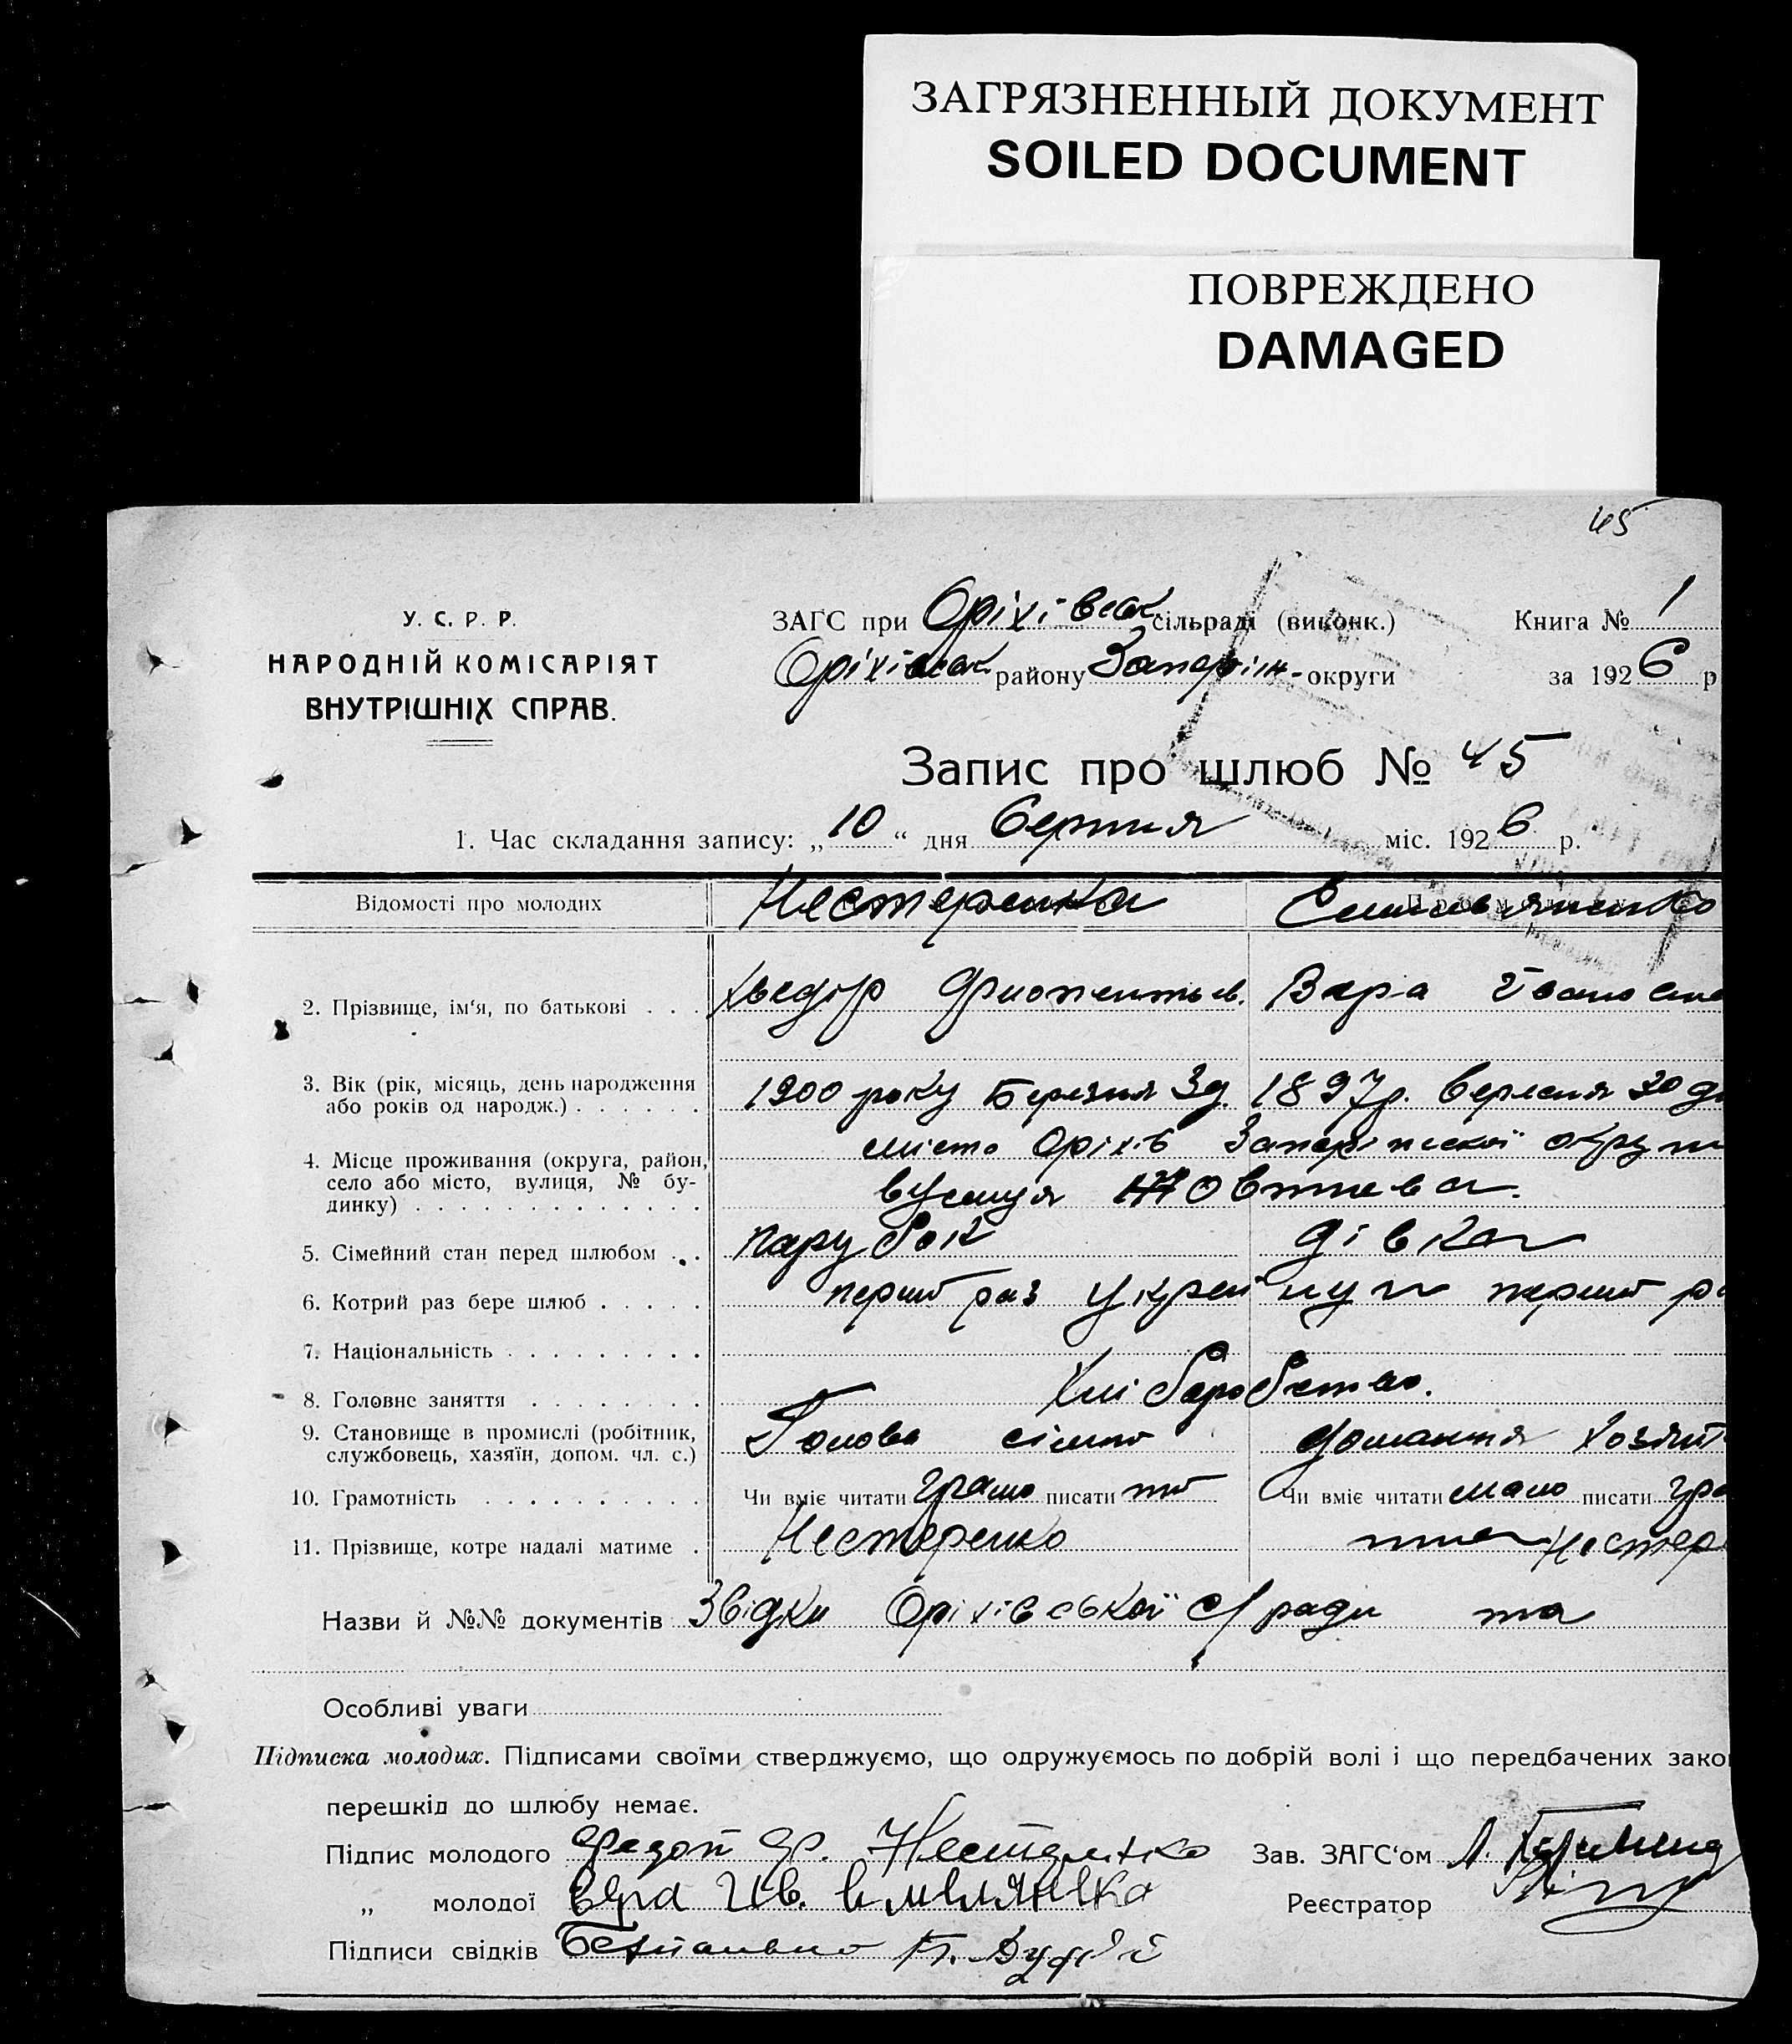 ЗАГРЯЗНЕННЫЙ ДОКУМЕНТ
SOILED DOCUMENT
ПОВРЕЖДЕНО
DAMAGED
45
У. С. Р. Р.
НАРОДНІЙ КОМІСАРІЯТ
ВНУТРІШНІХ СПРАВ.
ЗАГС при Оріхівськ сільраді (виконк.)
Оріхівськ району Запоріж- округи
Книга № 1
за 1926 р
Запис про шлюб № 45
1. Час складання запису: „10“ дня Серпня міс. 1926 р.
Відомості про молодих Нестеренка
2. Прізвище, ім‘я, по батькові . . . Хведір Вера
3. Вік (рік, місяць, день народження
або років од народж.) . . . . . . 1900 року Березня 3д. 1897р. Вересня
4. Місце проживання (округа, район,
село або місто, вулиця, № бу-
динку) . . . . . . . . . . . . . місто Оріхів
вулиця Жовтнева.
5. Сімейний стан перед шлюбом . . парубок дівка
6. Котрий раз бере шлюб . . . . . перш раз перш
7. Національність . . . . . . . . .
8. Головне заняття . . . . . . . . Хліборобство.
9. Становище в промислі (робітник,
службовець, хазяїн, допом. чл. с.) Голова домашня
10. Грамотність . . . . . . . . . . Чи вміє читати грамо писати Чи вміє читати мало писати
11. Прізвище, котре надалі матиме . Нестеренко Нестер
Назви й №№ документів Звідки Оріхівської с/ради та
Особливі уваги
Підписка молодих. Підписами своїми стверджуємо, що одружуємось по добрій волі і що передбачених зако
перешкід до шлюбу немає.
Підпис молодого Нестеренко
Зав. ЗАГС‘ом
„ молодої Вера Ив.
Реєстратор
Підписи свідків